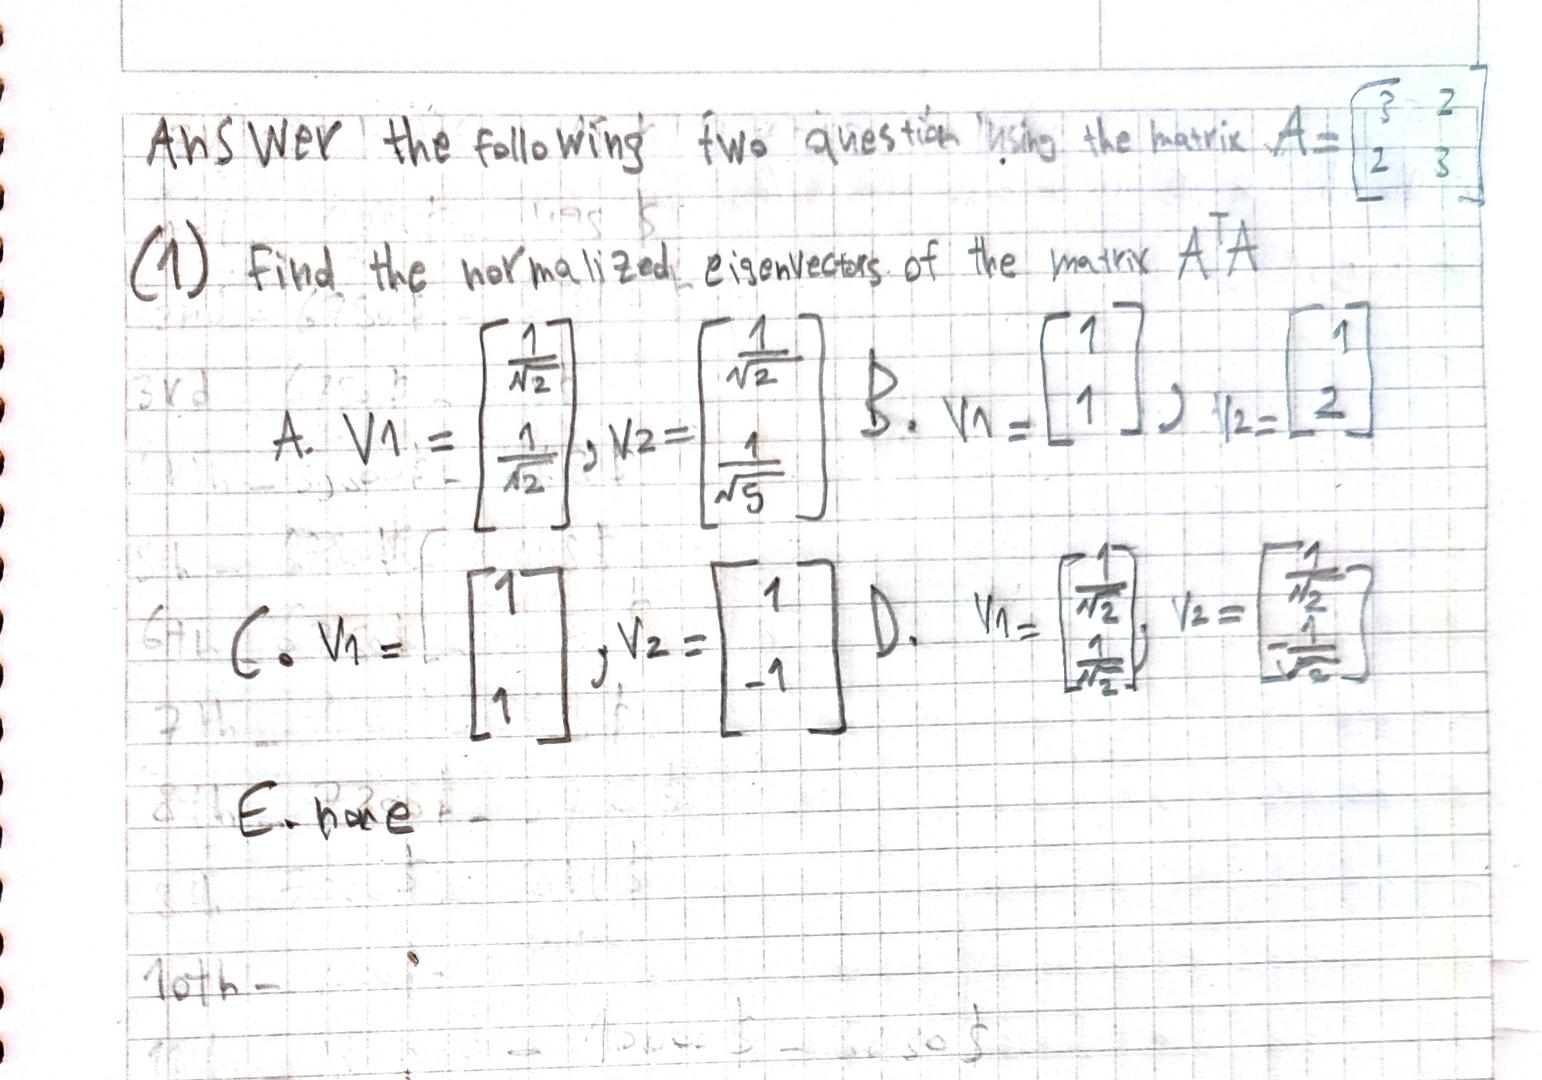 Answer the following two question using the matrix A = [3 2; 2 3]
(1) Find the normalized eigenvectors of the matrix AᵀA
A. V1 = [1/√2; 1/√2], V2 = [1/√2; 1/√5] B. V1 = [1; 1], V2 = [1; 2]
C. V1 = [1; 1], V2 = [1; -1] D. V1 = [1/√2; 1/√2], V2 = [1/√2; -1/√2]
E. none
10th -